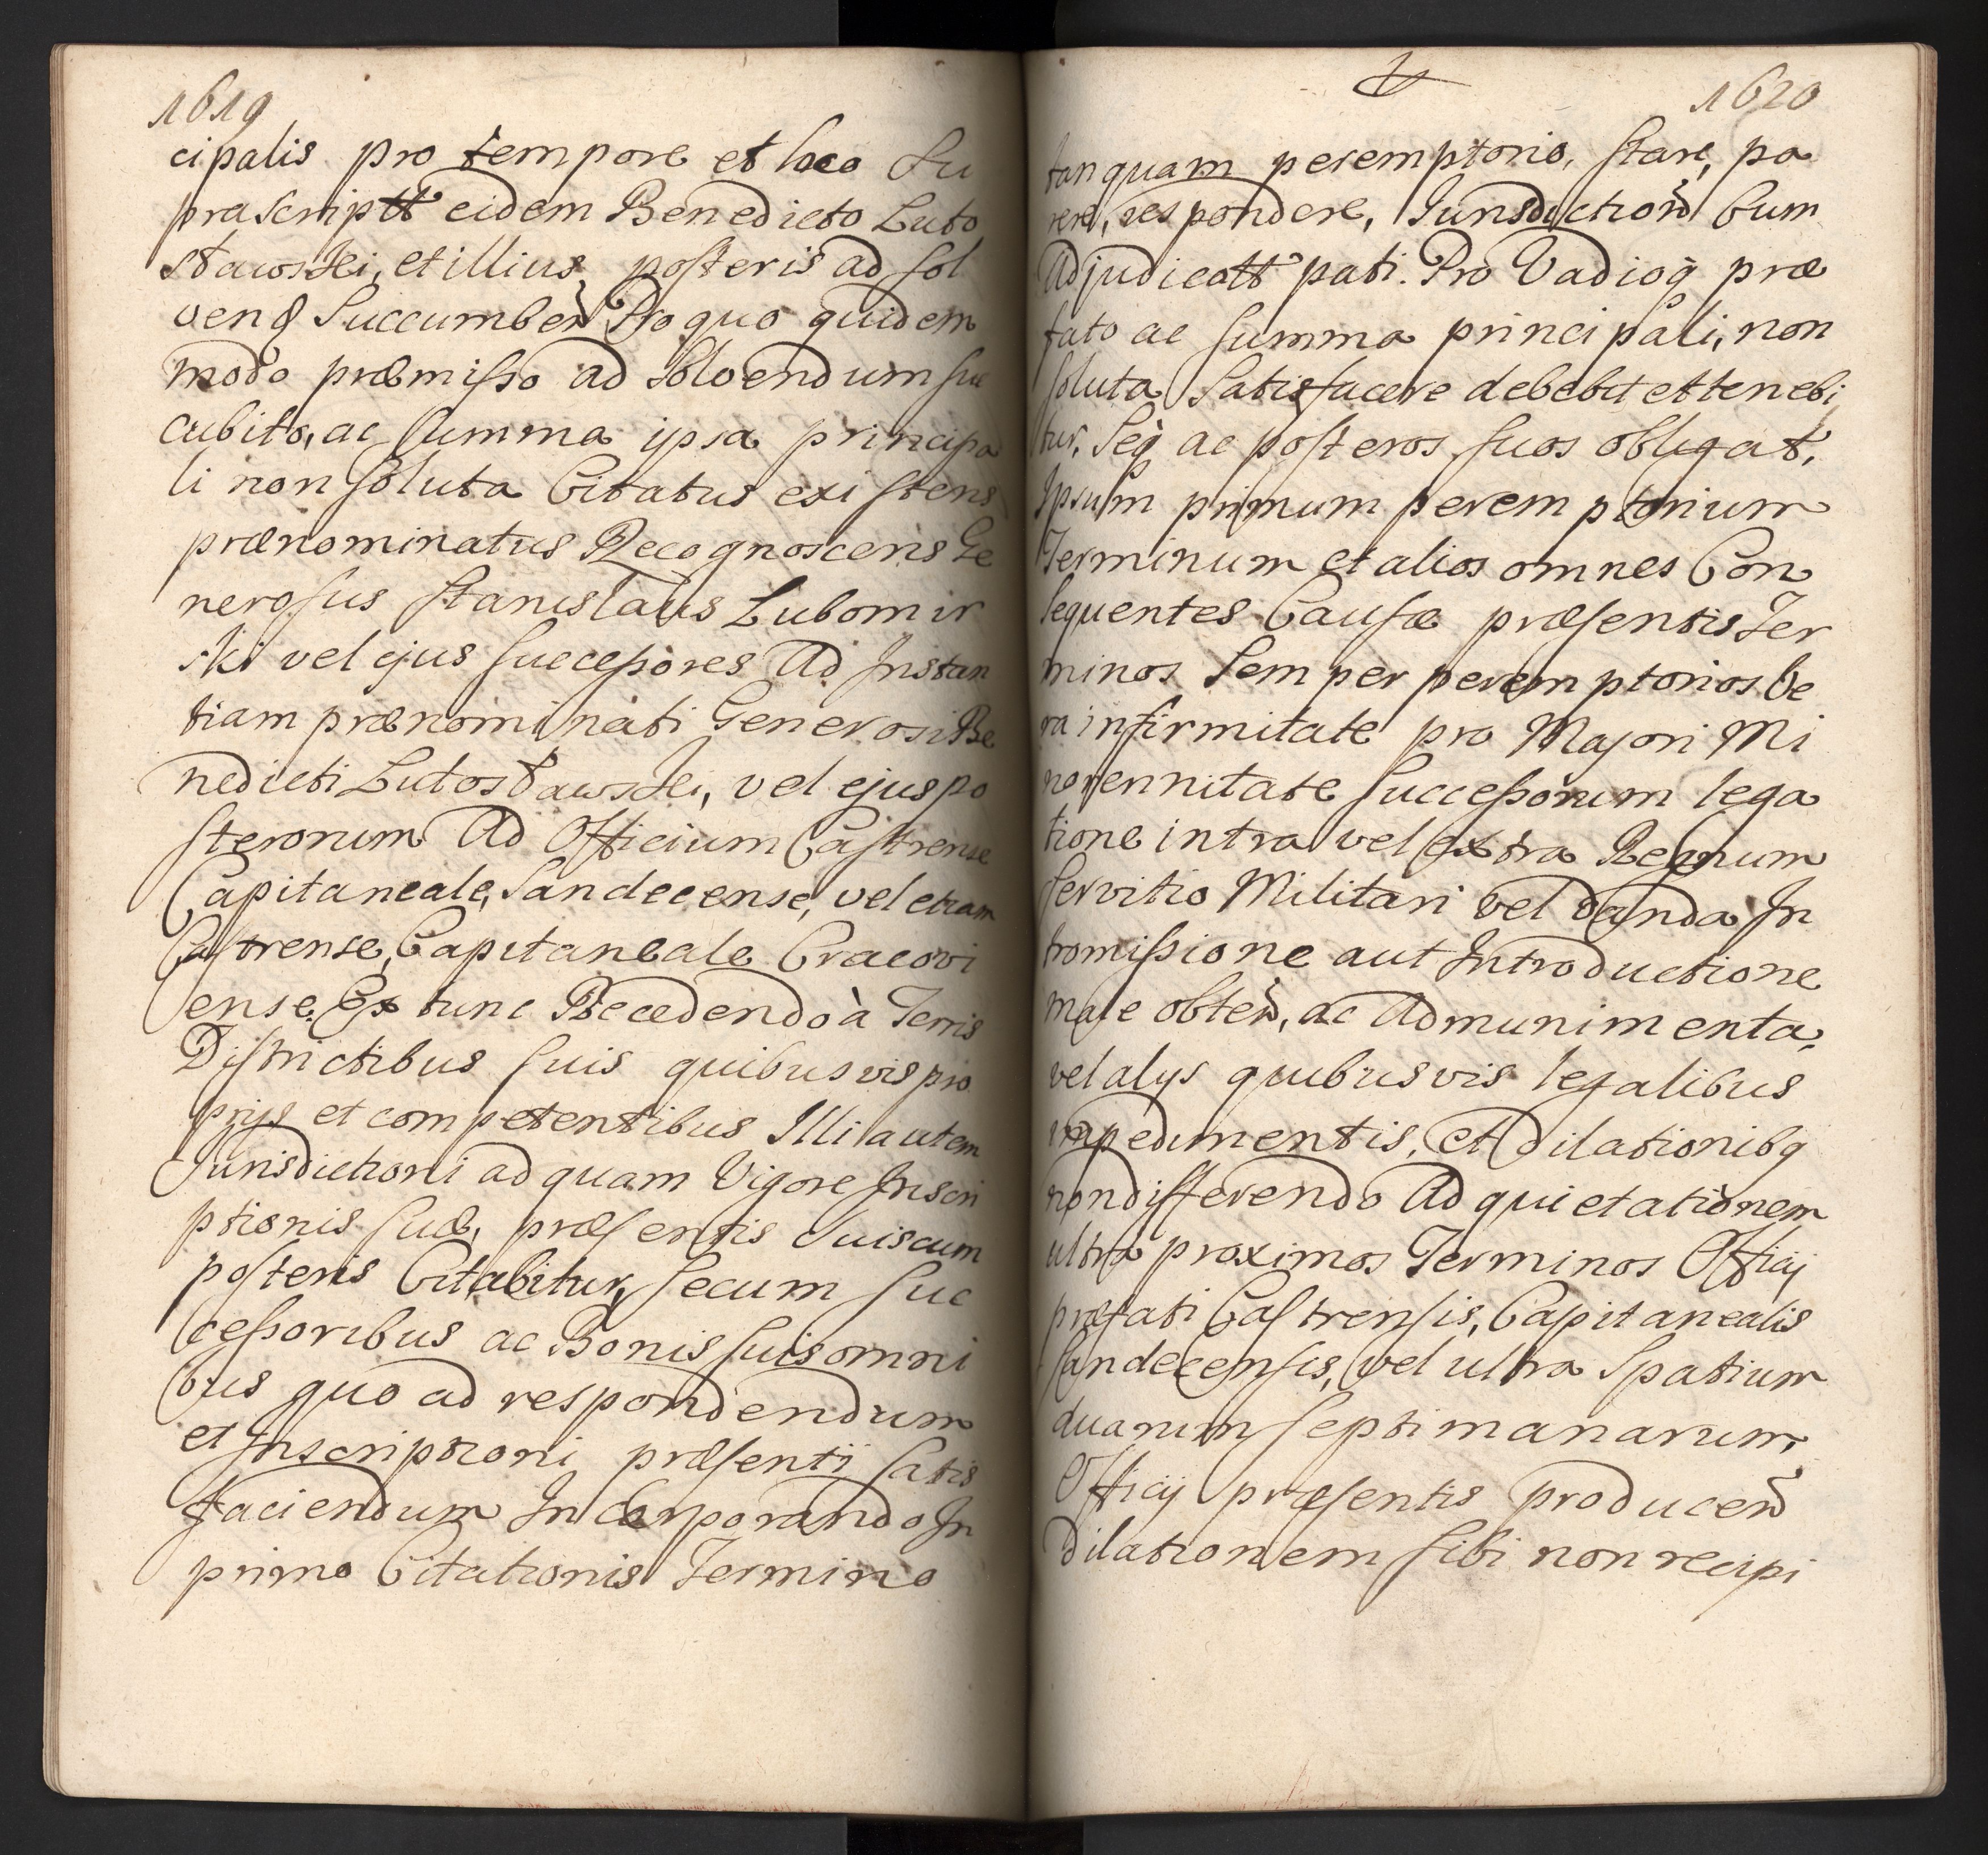 1619
cipalis pro tempore et loco Su
prascriptt eidem Benedicto Luto
sławski, et illius posteris ad sol
vend Succumben Pro quo quidem
modo præmisso ad Solvendum suc
cubito, ac summa ipsa principa
li non soluta Citatus existens
prænominatus Recognoscens Ge
nerosus Stanislaus Lubomir
ski vel ejus successores Ad Instan
tiam prænominati Generosi Be
nedicti Lutosławski, vel ejus po
sterorum Ad Officium Castrense
Capitaneale, Sandecense, vel etiam
Castrense, Capitaneale Cracovi
ense, Ex tunc Recedendo à Terris
Districtibus suis quibusvis pro
prijs et competentibus Illi autem
Jurisdictioni ad quam Vigore Inscri
ptionis suæ, præsentis Suis cum
posteris Citabitur, secum suc
cessoribus ac Bonis suis omni
bus quo ad respondendum
et Inscriptioni præsenti satis
faciendum Incorporando In
primo Citationis Termino
1620
tanquam peremptorio, stare, pa
rere, respondere, Iurisdiction Cum
Adjudicatt pati. Pro Vadioq præ
fato ac summa principali, non
soluta Satisfacere debebit et tenebi
tur, Seq ac posteros suos obligat,
Ipsum primum peremptorium
Terminum et alios omnes Con
sequentes Causæ præsentis Ter
minos Semper peremptorios Ve
ra infirmitate pro Majori Mi
norennitate successorum lega
tione intra vel extra Regnum
servitio Militari vel danda In
tromissione aut Introductione
male obten, ac Admunimenta,
vel alys quibusvis legalibus
impedimentis, et Dilationibq
non differendo Ad quietationem
ultra proximos Terminos Officij
præfati Castrensis, Capitanealis
Sandecensis, vel ultra Spatium
duarum septimanarum,
Officij præsentis producen
Dilationem sibi non recipi